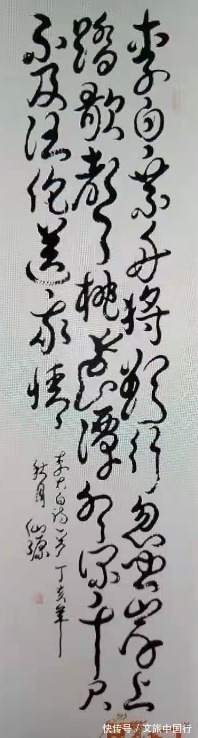 李白乘舟將欲行忽聞岸上
踏歌聲桃花潭水深千尺
不及汪倫送我情
李太白詩一首 丁亥年
秋月 仙源
快传号 / 文旅中国行